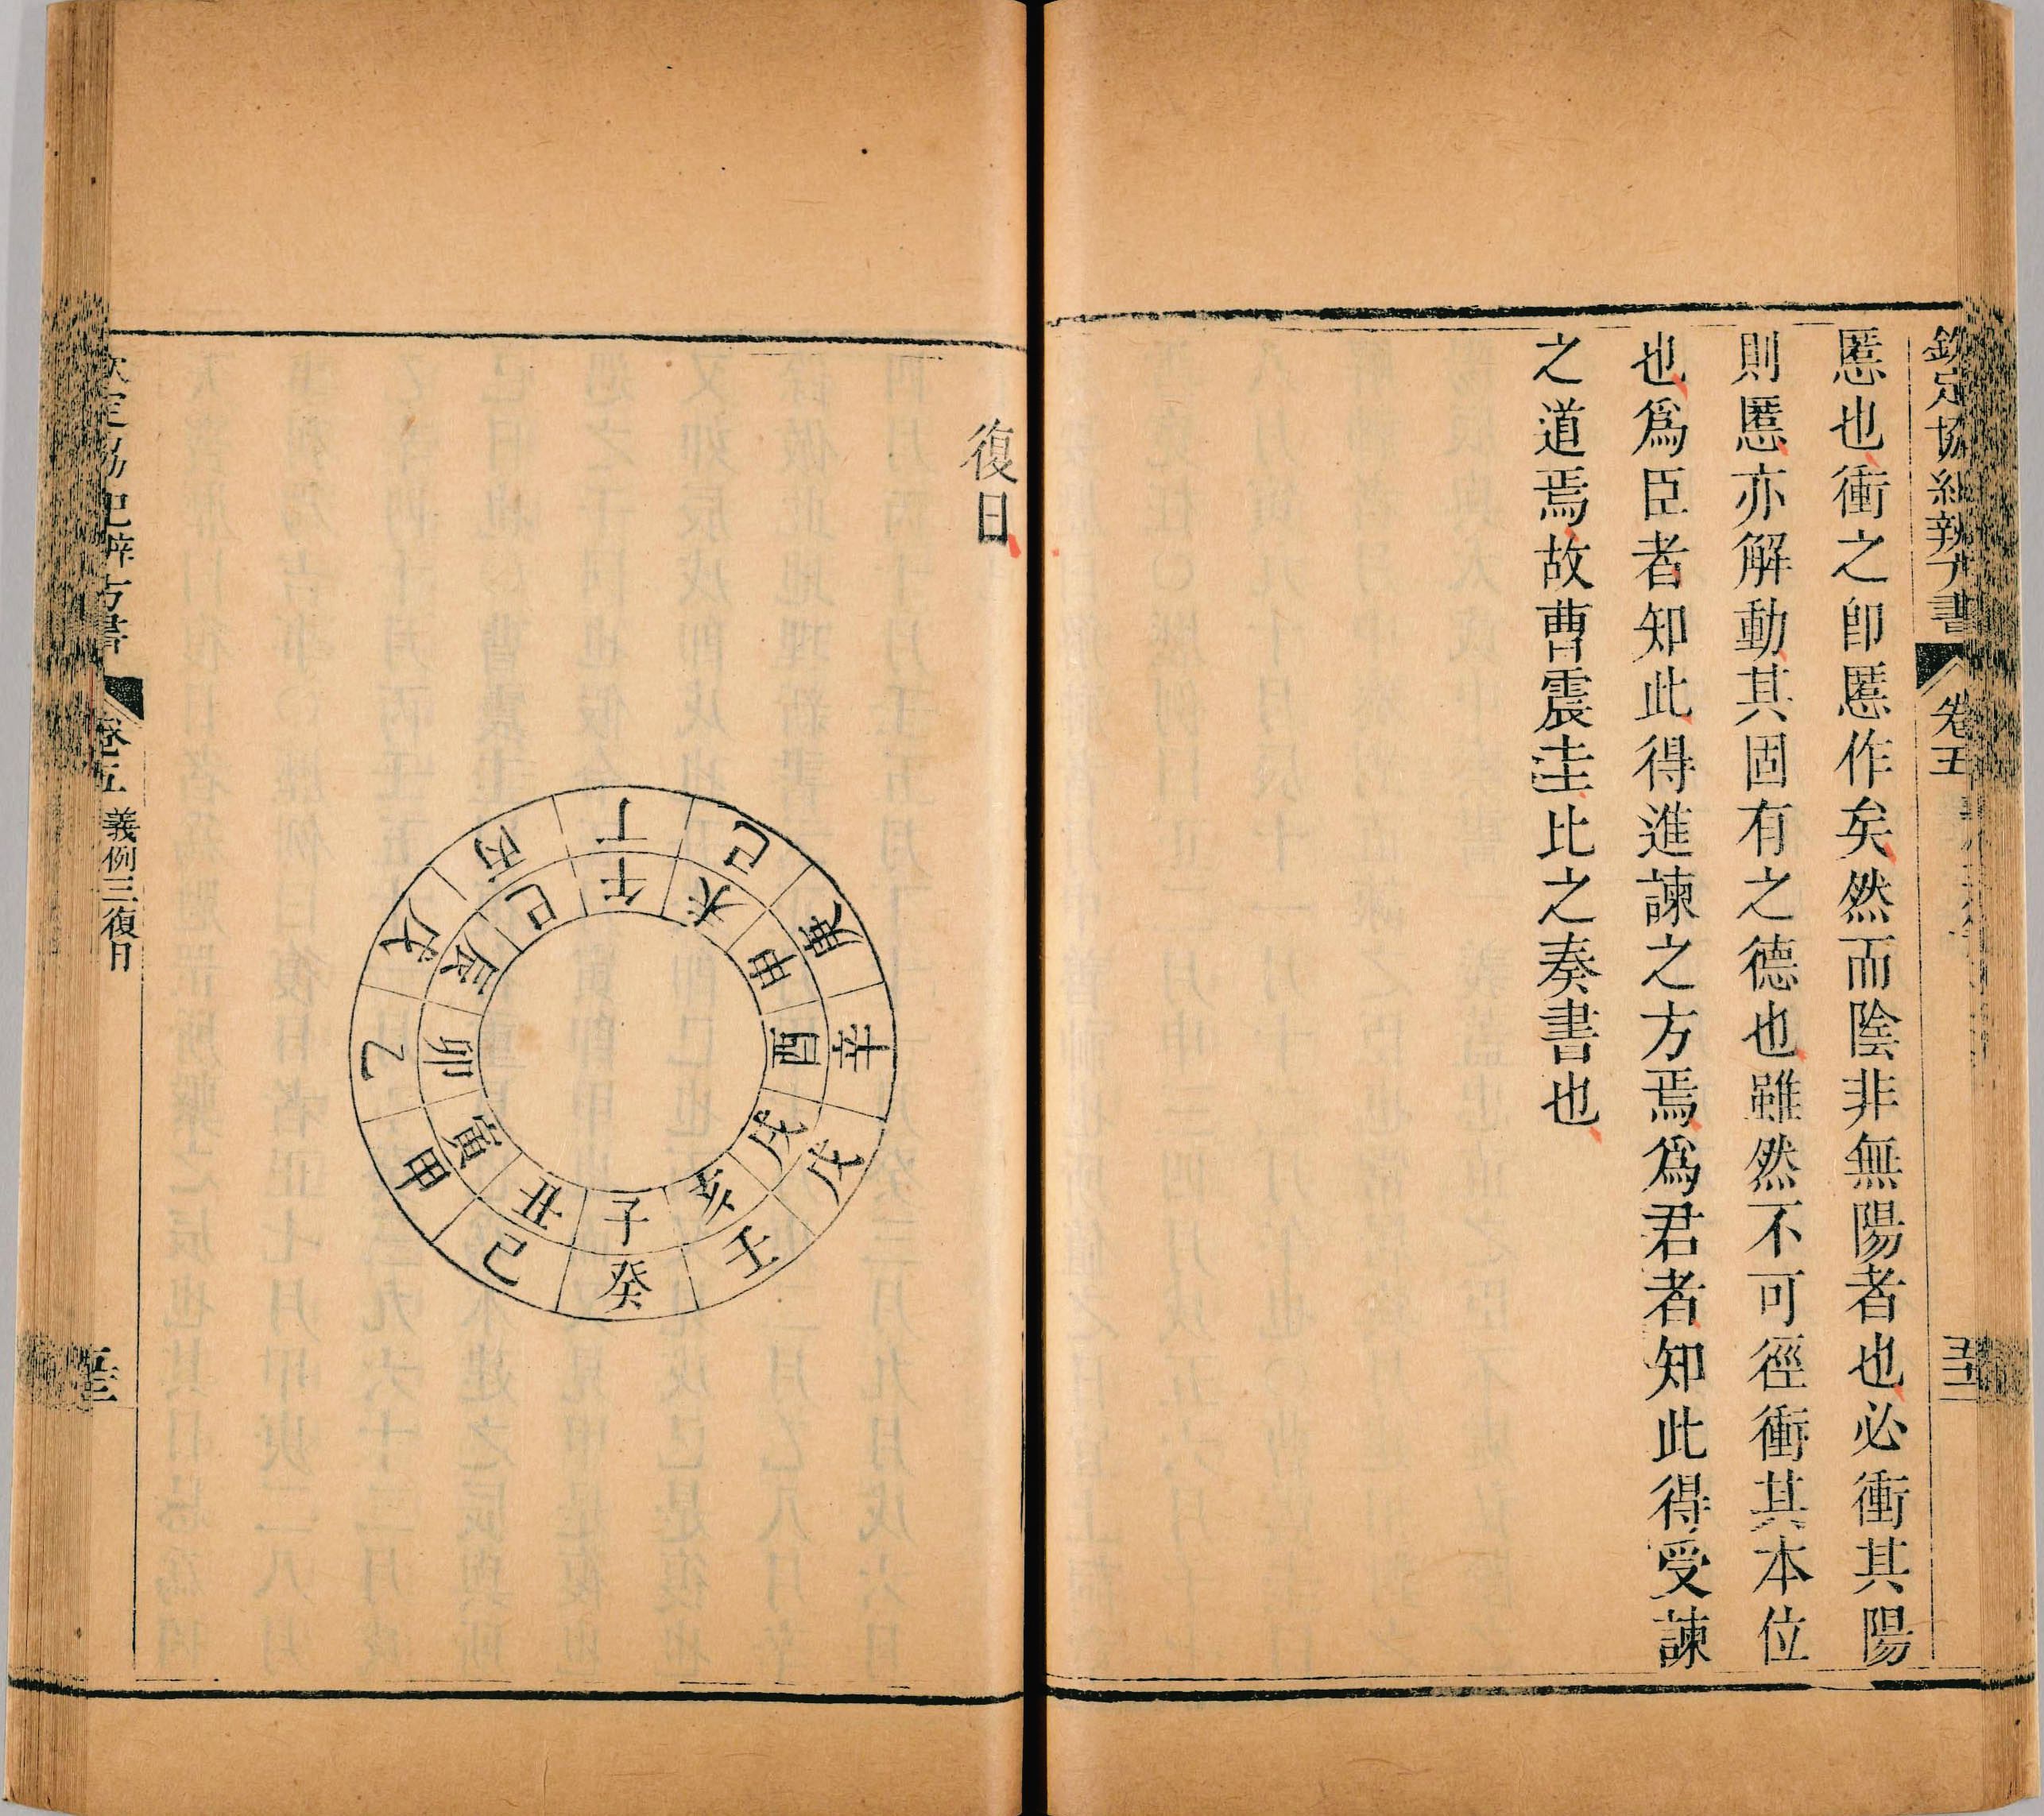 欽定協紀辨方書 卷五
慝也衝之卽慝作矣然而陰非無陽者也必衝其陽
則慝亦解動其固有之德也雖然不可徑衝其本位
也爲臣者知此得進諫之方焉爲君者知此得受諫
之道焉故曹震圭比之奏書也
復日
丁
己
庚
辛
戊
壬
癸
己
甲
乙
戊
丙
午
未
申
酉
戌
亥
子
丑
寅
卯
辰
巳
欽定協紀辨方書 卷五 義例三復日